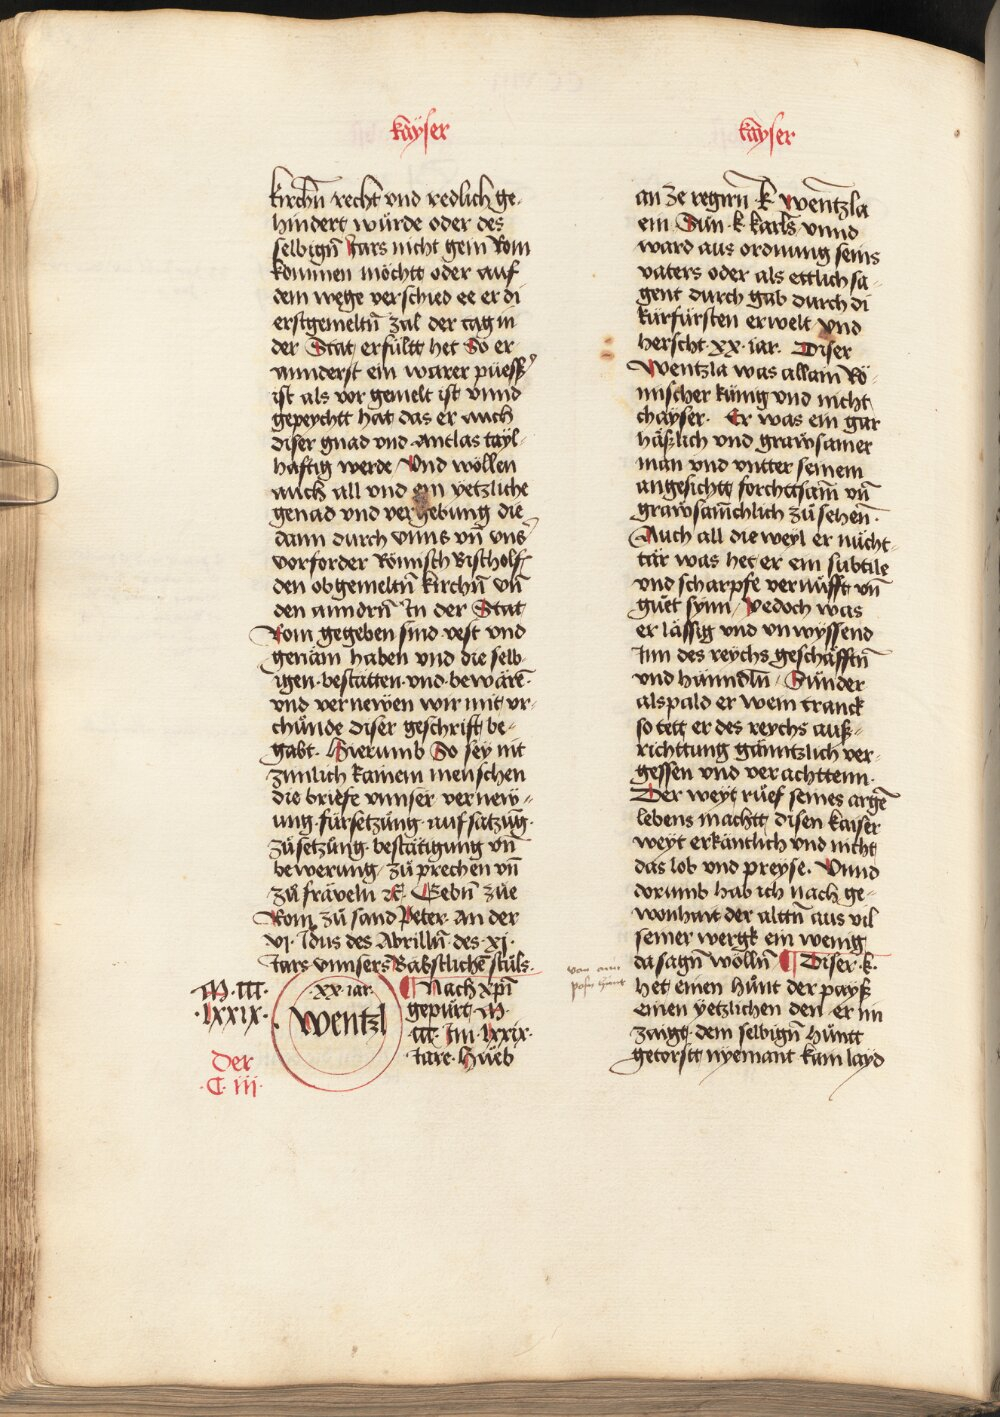 kayser
kirchn̄ recht vnd redlich ge-
hindert würde oder des
selbign̄ Jars nicht gem Rom
kommen möchtt oder auf
dem wege verschied ee er di
erstgemeltn̄ zal der tag in
der Stat erfülltt het So er
annderst ein warer püesser
ist als vor gemelt ist vnnd
gepeychtt hat das er auch
diser gnad vnd Antlas tayl-
haftig werde Vnd wöllen
auch all vnd ein yetzliche
genad vnd vergebung die
dann durch vnns vn̄ vnser
vorforder Römisch Bischolff
den obgemeltn̄ kirchn̄ vn̄
den anndrn̄ In der Stat
Rom gegeben sind vest vnd
genäm haben vnd die selb-
igen bestätten vnd bewären̄
vnd vernewen wir mit vr-
chünde diser geschrift be-
gabt. Hierumb So sey nit
zimlich kainem menschen
die briefe vnnser vernew-
ung fürsetzung aufsatzung
zůsetzung bestätigung vn̄
bewerung zůprechen vn̄
zů fräveln ꝛc̄ Gebn̄ zue
Rom zů sand Peter An der
vj. Idus des Abrilln̄ des xj.
Jars vnnsers Babstlichē stůls.
M.ccc.
.lxxix.
der
.C. iii.
.xx. iar.
Wentzl
Nach xp̄i
gepürt M.
ccc. Im lxxix.
Jare Hůeb
kayser
an ze regirn̄ k. Wentzla
ein Sun k. karls vnnd
ward aus ordnung seins
vaters oder als ettlich sa-
gent durch gab durch di
kürfürsten erwelt vnd
herscht .xx. iar. Diser
Wentzla was allain Rö-
mischer künig vnd nicht
chayser. Er was ein gar
häßlich vnd grawsamer
man vnd vntter seinem
angesichtt forchttsam̄ vn̄
grawsam̄chlich zů sehen̄.
Auch all die weyl er nücht-
tär was het er ein subtile
vnd scharpfe vernüfft vn̄
gůet synn Yedoch was
er lässig vnd vnwyssend
Inn des reychs geschäfftn̄
vnd hänndln̄ Sünder
alspald er wein tranck
so tett er des reychs auß-
richttung gänntzlich ver-
gessen vnd verachttenn.
Der weyt růef seines argē
lebens machtt disen kaiser
weyt erkäntlich vnd nicht
das lob vnd preyse. Vnnd
dorumb hab ich nach ge-
wonhait der alttn̄ aus vil
seiner wergk ein wenig
da sagn̄ wölln̄ Diser .k.
het einen hůnt der payß
einen yetzlichen den er im
zaigt dem selbign̄ hůntt
getorstt nyemant kain layd
von aim
posn hunt